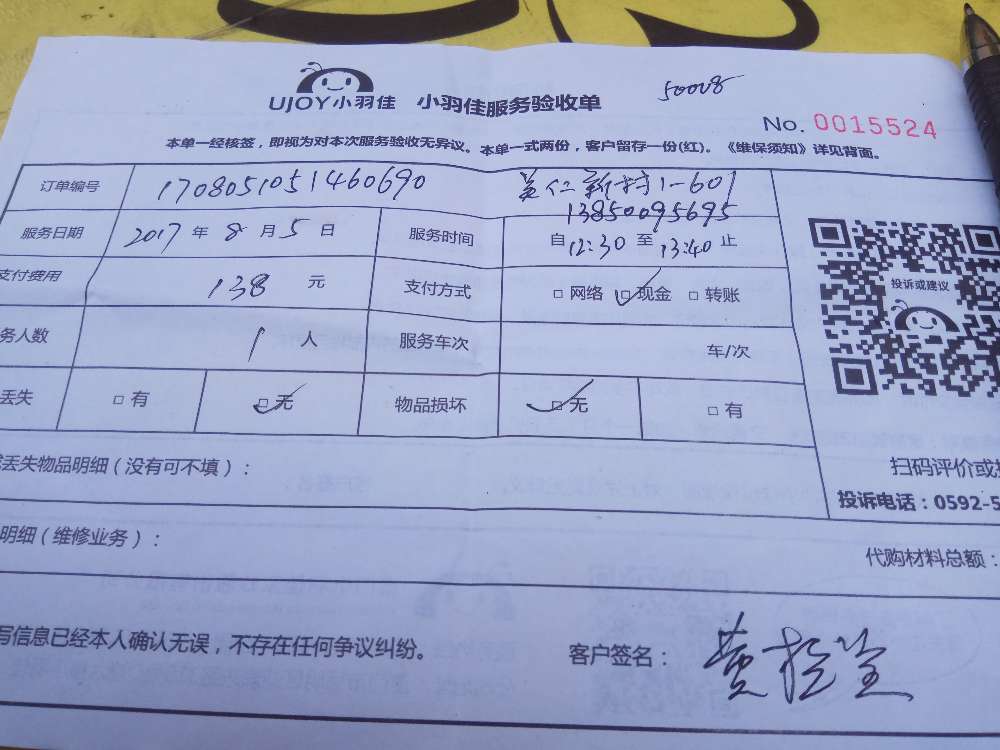 UJOY小羽佳 小羽佳服务验收单
50008
No. 0015524
本单一经核签，即视为对本次服务验收无异议。本单一式两份，客户留存一份(红)。《维保须知》详见背面。
订单编号 1708051051460690 1-601
13850095695
服务日期 2017 年 8 月 5 日 服务时间 自 12:30 至 13:40 止
支付费用 138 元 支付方式 □ 网络 □ 现金 □ 转账
务人数 1 人 服务车次 车/次
丢失 □ 有 □ 无 物品损坏 □ 无 □ 有
投诉或建议
丢失物品明细（没有可不填）：
扫码评价或
投诉电话：0592-5
明细（维修业务）：
代购材料总额：
写信息已经本人确认无误，不存在任何争议纠纷。 客户签名：